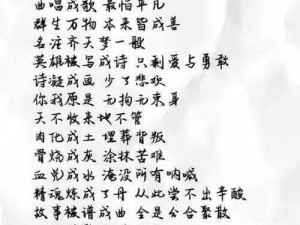 曲唱成歌 最怕平凡
群生万物 本来皆成善
名注齐天梦一散
英雄被写成诗 只剩爱与勇敢
诗凝成画 少了悲欢
你我原是 无拘无束身
天不收来地不管
肉化成土 埋葬背叛
骨炼成灰 涂抹苦难
血熬成水 淹没所有呐喊
精魂炼成了丹 从此尝不出辛酸
故事被谱成曲 全是分合聚散